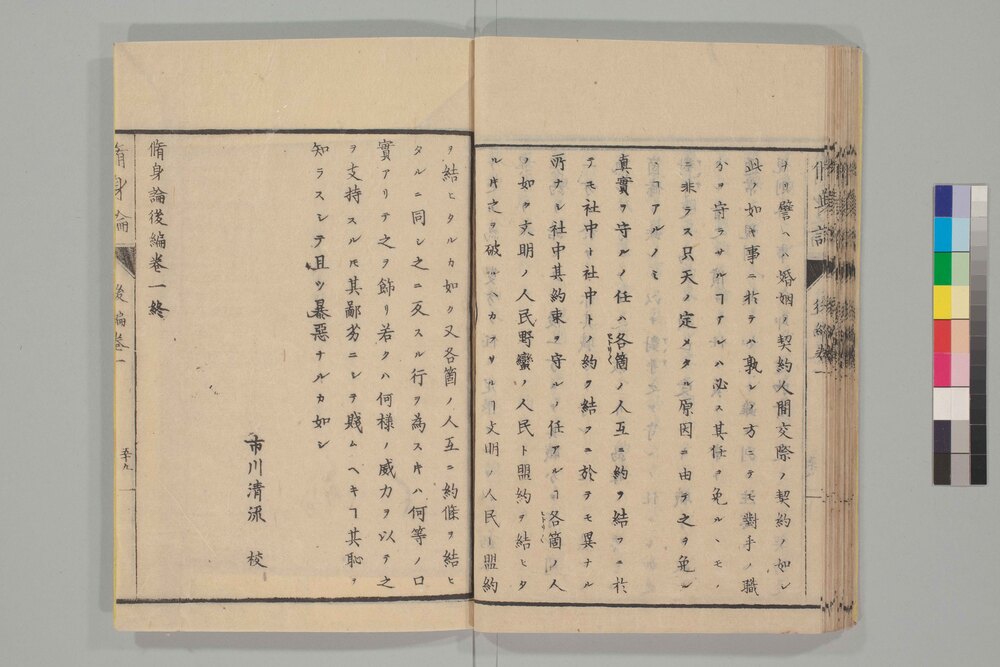 ヲ以譬ヘハ婚姻ノ契約人間交際ノ契約ノ如シ
此等ノ如キ事ニ於テハ孰レノ方ニテモ對手ノ職
分ヲ守ラサルヿアルハ必ス其任ヲ免ルヽモノ
ニ非ラス只天ノ定メタル原因ニ由テ之ヲ免ル
ヿアルノミ
真實ヲ守ルノ任ハ各箇ノ人互ニ約ヲ結フニ於
テモ社中ト社中トノ約ヲ結フニ於テモ異ナル
所ナシ社中其約束ヲ守ルノ任アルヿ各箇ノ人
ノ如ク文明ノ人民野蠻ノ人民ト盟約ヲ結ヒタ
ル片之ヲ破ルヘカラサルヿ文明ノ人民ト盟約
ヲ結ヒタルカ如ク又各箇ノ人互ニ約條ヲ結ヒ
タルニ同シ之ニ反スル行ヲ為ス片ハ何等ノ口
實アリテ之ヲ飾リ若クハ何様ノ威力ヲ以テ之
ヲ支持スルモ其鄙劣ニシテ賤ムヘキヿ其恥ヲ
知ラスシテ且ツ暴惡ナルカ如シ
市川清流 校
脩身論後編卷一終
脩身論 後編卷一 五十九